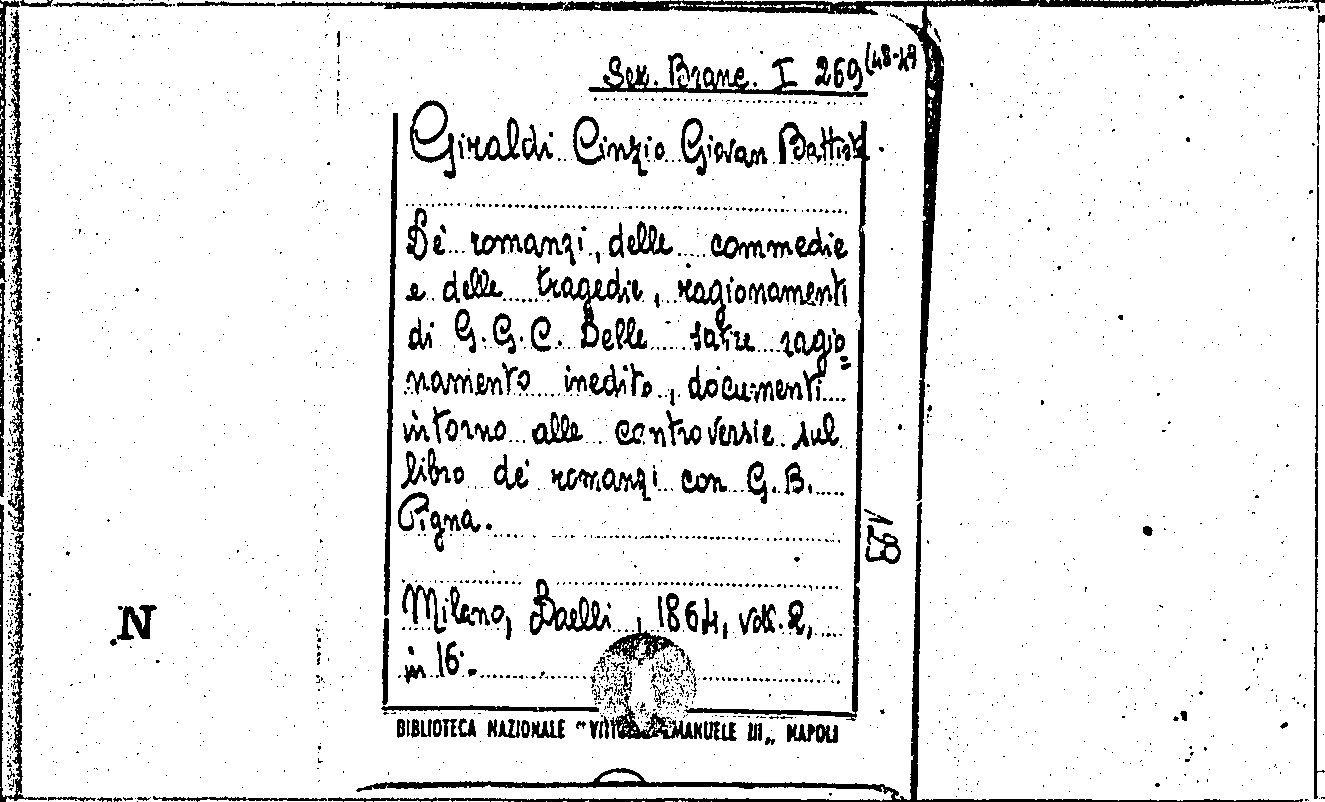 Sez. Branc. I 269 (48-49
Giraldi Cinzio Giovan Battista.
De' romanzi, delle commedie
e delle tragedie, ragionamenti
di G. G. C. Delle satire ragio=
namento inedito, documenti
intorno alle controversie sul
libro de' romanzi con G. B.
Pigna.
Milano, Daelli, 1864, voll. 2,
in 16.-
BIBLIOTECA NAZIONALE "VITTORIO EMANUELE III" NAPOLI
N